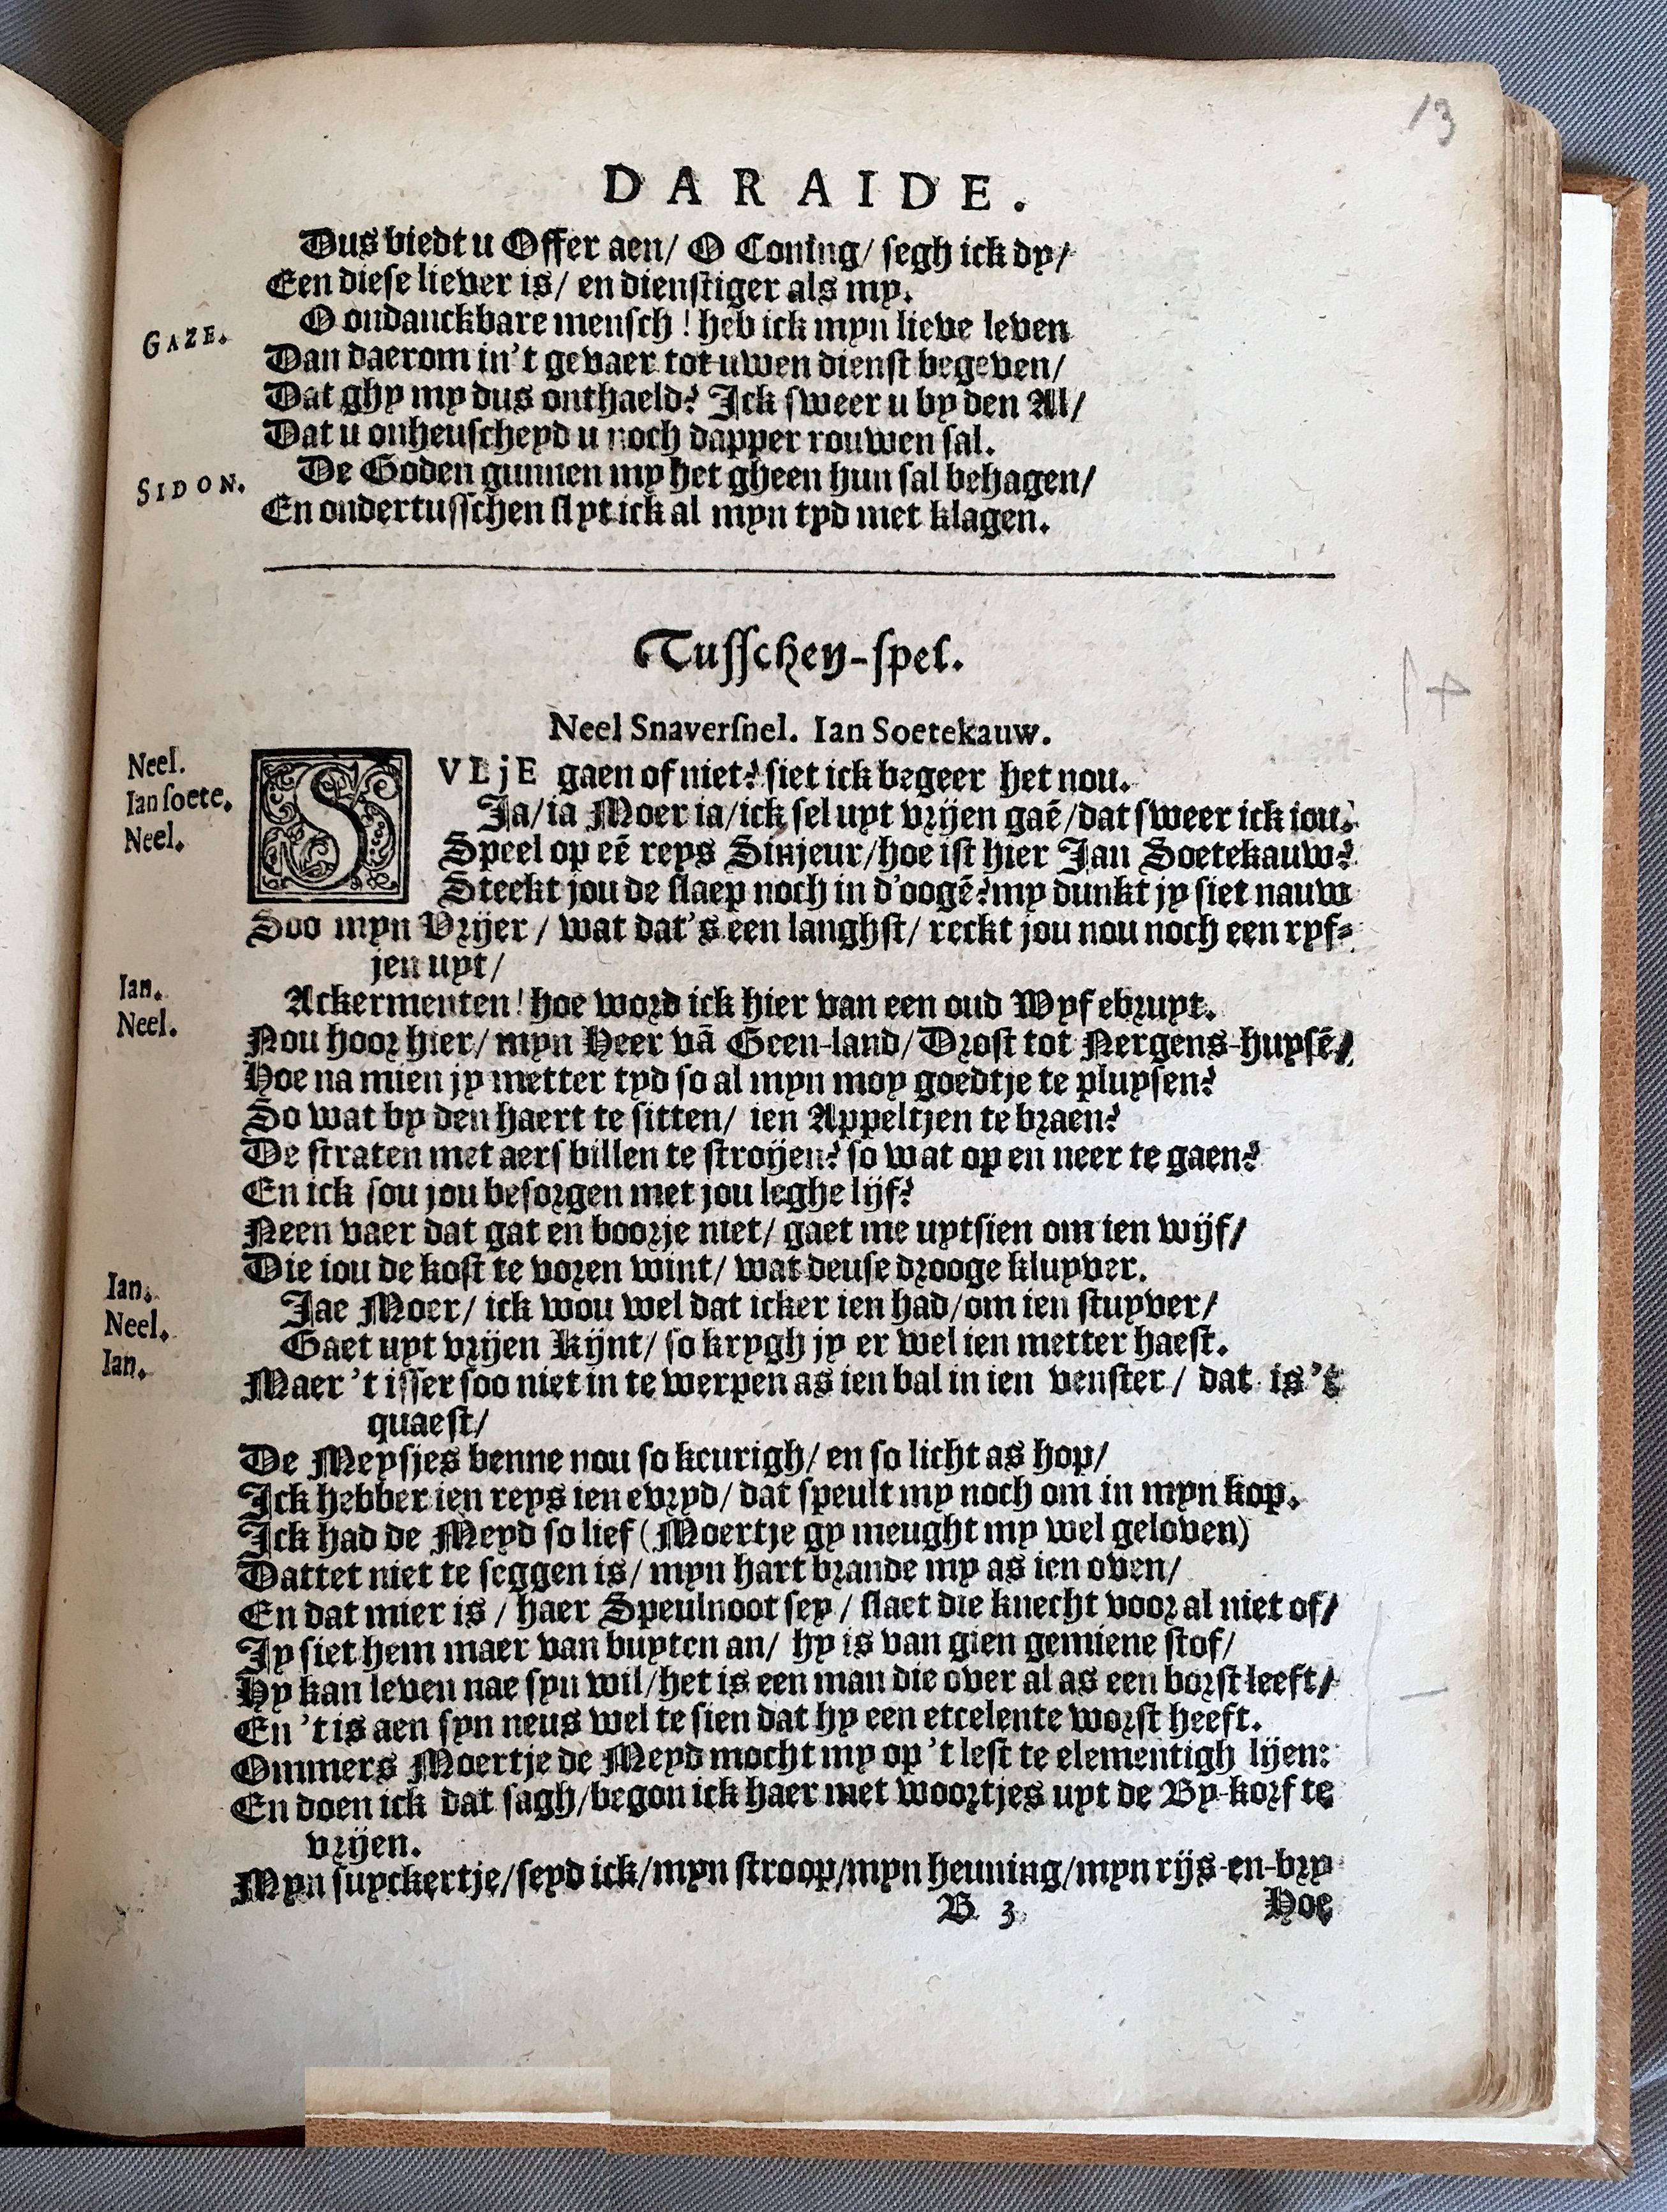 13
DARAIDE.
Dus biedt u Offer aen/ O Coning/ segh ick dy/
Een diese liever is/ en dienstiger als my.
GAZE. O ondanckbare mensch! heb ick myn lieve leven
Dan daerom in't gevaer tot uwen dienst begeven/
Dat ghy my dus onthaeld? Ick sweer u by den Al/
Dat u onheuscheyd u noch dapper rouwen sal.
SIDON. De Goden gunnen my het gheen hun sal behagen/
En ondertusschen slyt ick al myn tyd met klagen.
Tusschen-spel.
Neel Snaversnel. Ian Soetekauw.
Neel. SVLjE gaen of niet? siet ick begeer het nou.
Ian soete. Ja/ ia Moer ia/ ick sel uyt vrijen gaẽ/ dat sweer ick iou.
Neel. Speel op eẽ reys Sinjeur/ hoe ist hier Jan Soetekauw?
Steekt jou de slaep noch in d'oogẽ? my dunkt jy siet nauw
Soo myn Vrijer/ wat dat's een langhst/ reckt jou nou noch een ryf-
jen uyt/
Ian. Ackermenten! hoe word ick hier van een oud Wyf ebruyt.
Neel. Nou hoor hier/ myn Heer vã Geen-land/ Drost tot Nergens-huysẽ/
Hoe na mien jy metter tyd so al myn moy goedtje te pluysen?
So wat by den haert te sitten/ ien Appeltjen te braen?
De straten met aers billen te stroijen? so wat op en neer te gaen?
En ick sou jou besorgen met jou leghe lijf?
Neen vaer dat gat en boorje niet/ gaet me uytsien om ien wijf/
Die iou de kost te voren wint/ wat deuse drooge kluyver.
Ian. Jae Moer/ ick wou wel dat icker ien had/ om ien stuyver/
Neel. Gaet uyt vrijen Kijnt/ so krygh jy er wel ien metter haest.
Ian. Maer 't isser soo niet in te werpen as ien bal in ien venster/ dat is 't
quaest/
De Meysjes benne nou so keurigh/ en so licht as hop/
Ick hebber ien reys ien evryd/ dat speult my noch om in myn kop.
Ick had de Meyd so lief (Moertje gy meught my wel geloven)
Dattet niet te seggen is/ myn hart brande my as ien oven/
En dat mier is/ haer Speulnoot sey/ slaet die knecht voor al niet of/
Jy siet hem maer van buyten an/ hy is van gien gemiene stof/
Hy kan leven nae syn wil/ het is een man die over al as een borst leeft/
En 't is aen syn neus wel te sien dat hy een etcelente worst heeft.
Ommers Moertje de Meyd mocht my op 't lest te elementigh lijen:
En doen ick dat sagh/ begon ick haer met woortjes uyt de By-korf te
vrijen.
Myn suyckertje/ seyd ick/ myn stroop/ myn heuning/ myn rijs-en-bry
B 3 Hoe